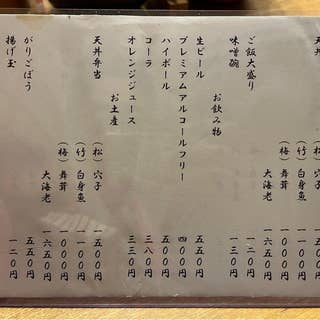 天丼
（松）穴子 一五〇〇円
（竹）白身魚 一一〇〇円
（梅）舞茸 一〇〇〇円
大海老 一六五〇円
ご飯大盛り 一二〇円
味噌碗 一三〇円
お飲み物
生ビール 五五〇円
プレミアムアルコールフリー 四〇〇円
ハイボール 五〇〇円
コーラ 三八〇円
オレンジジュース 三三〇円
お土産
天丼弁当
（松）穴子 一五〇〇円
（竹）白身魚 一一〇〇円
（梅）舞茸 一〇〇〇円
大海老 一六五〇円
がりごぼう 五五〇円
揚げ玉 一二〇円